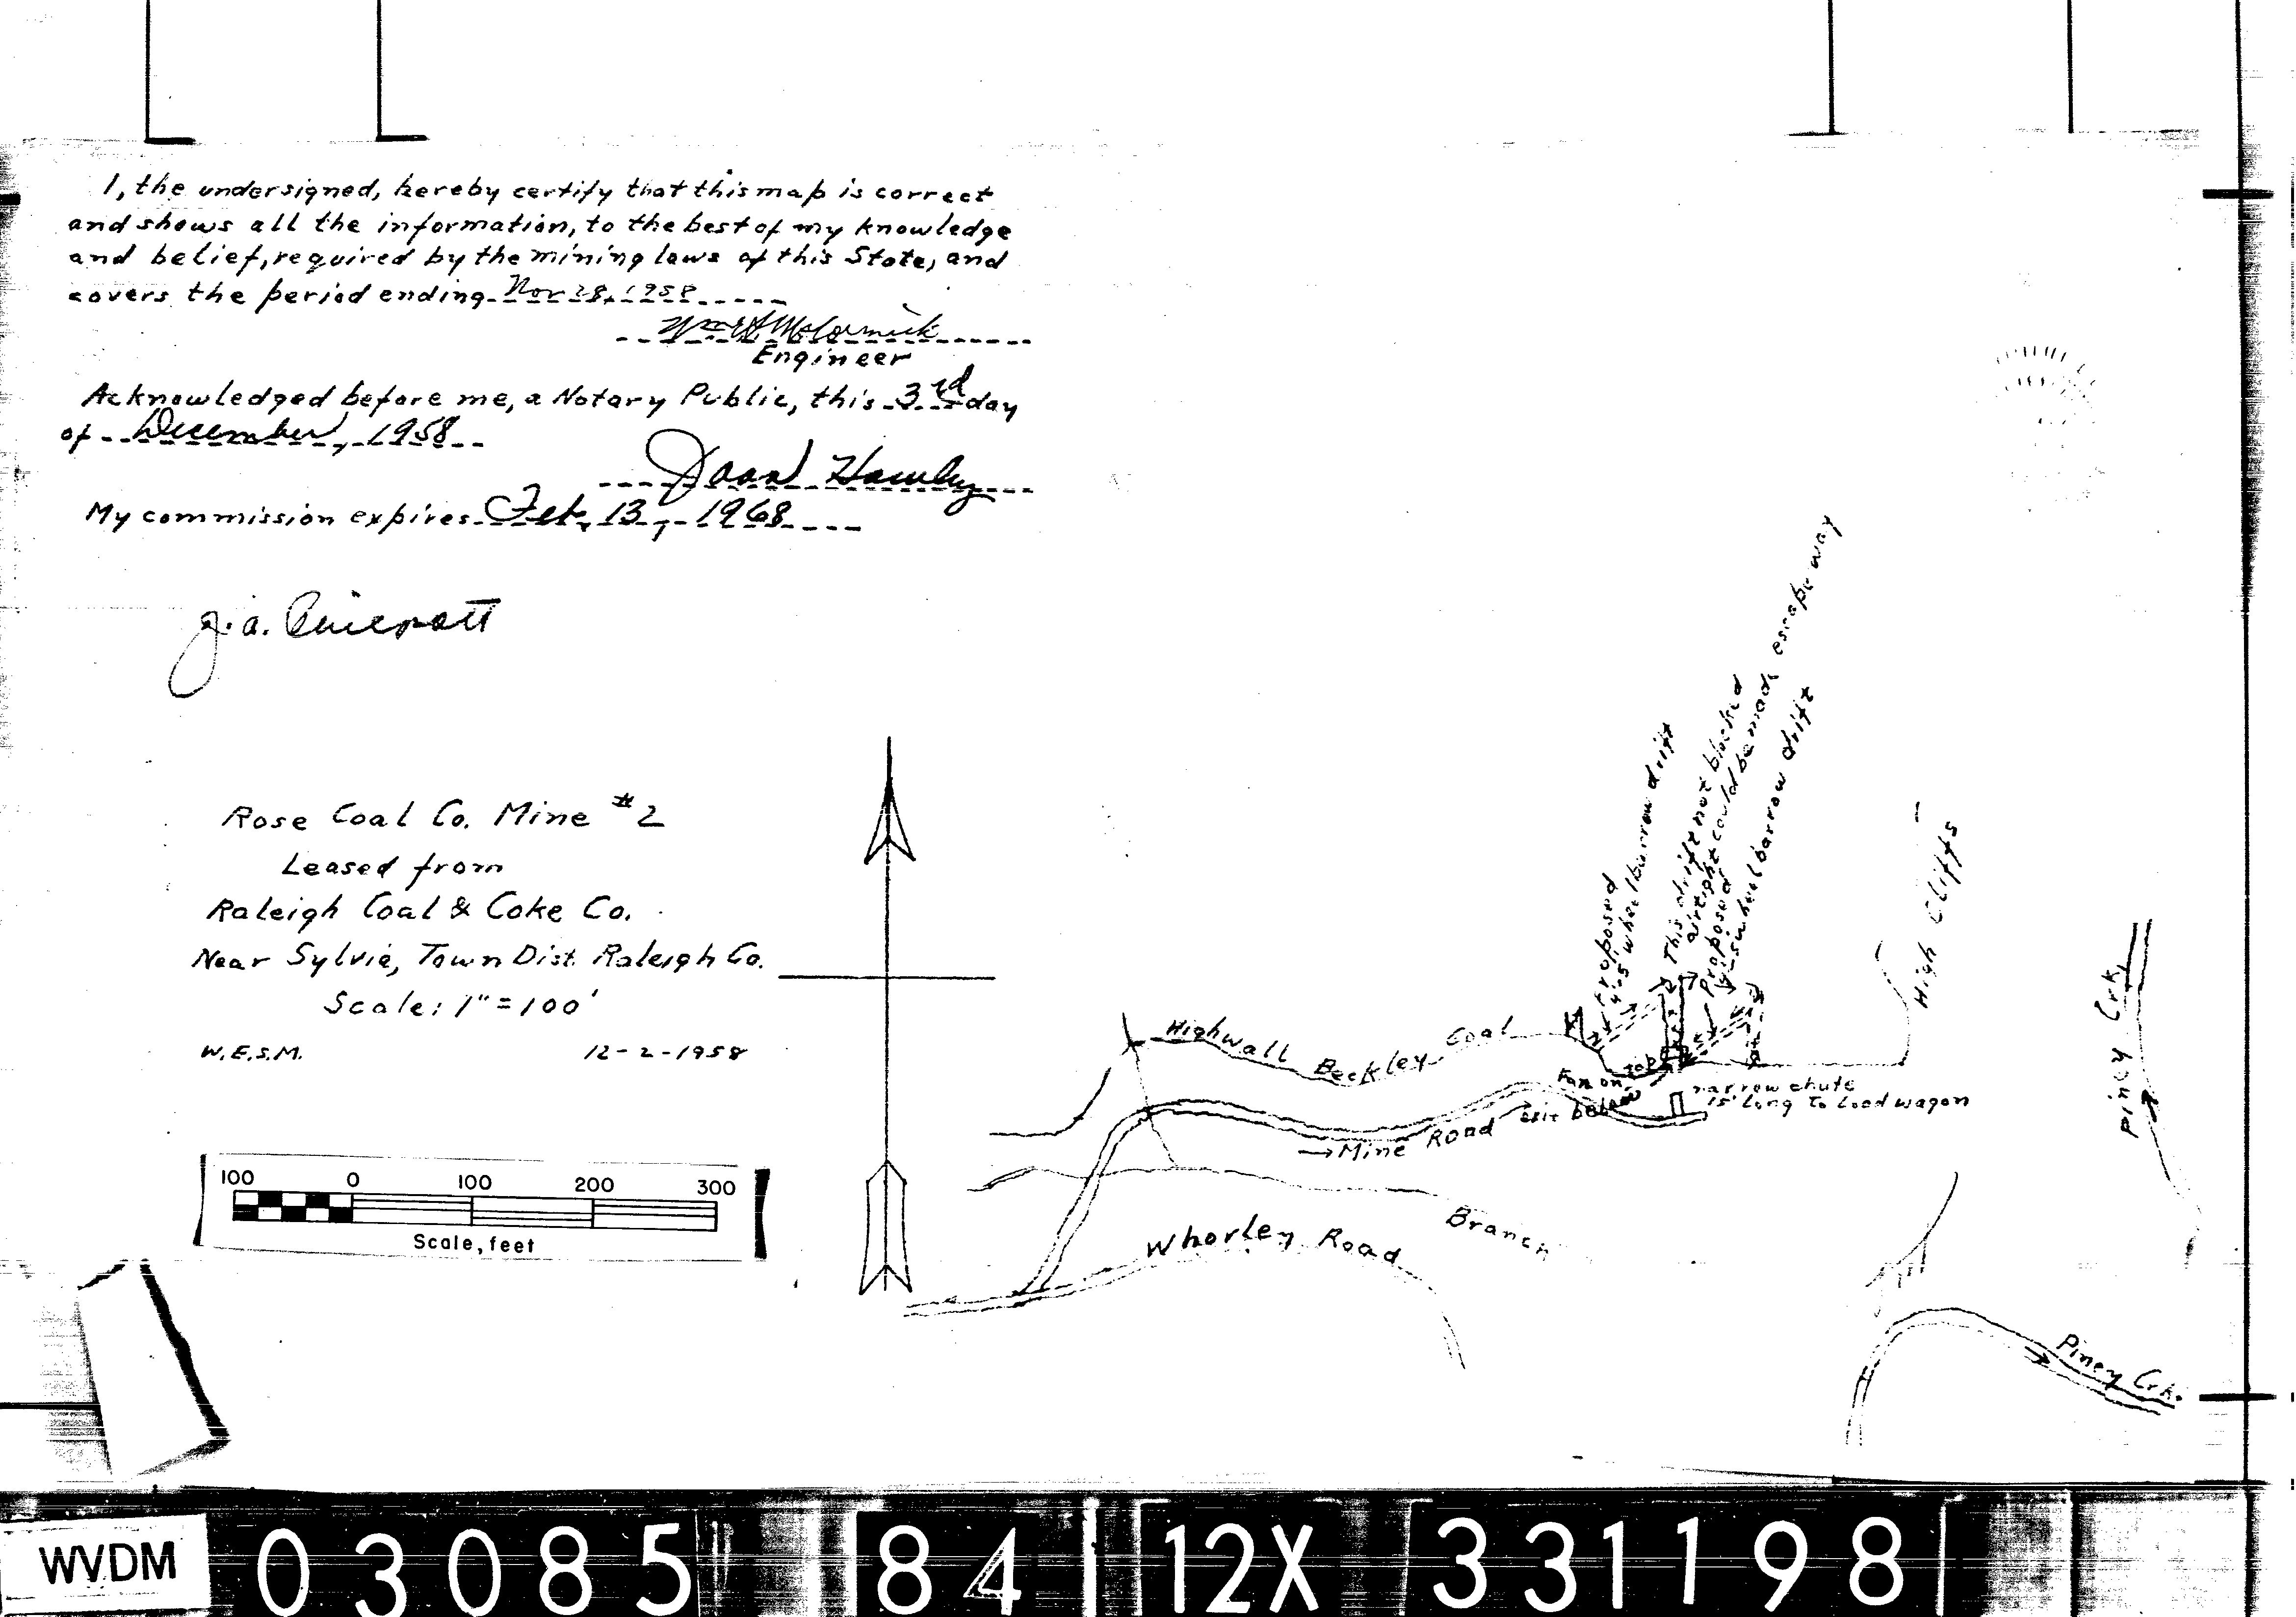 I, the undersigned, hereby certify that this map is correct
and shows all the information, to the best of my knowledge
and belief, required by the mining laws of this State, and
covers the period ending Nov 28, 1958
Wm H McCormick
Engineer
Acknowledged before me, a Notary Public, this 3rd day
of December, 1958
Joan
My commission expires Feb. 13, 1968
J. A.
Rose Coal Co. Mine #2
Leased from
Raleigh Coal & Coke Co.
Near Sylvia, Town Dist. Raleigh Co.
Scale: 1" = 100'
W.E.S.M. 12-2-1958
100 0 100 200 300
Scale, feet
Proposed
4'-5' wheelbarrow drift
This drift not blocked
airtight could be made escape way
Proposed
4'-5' wheelbarrow drift
High Cliffs
Piney Crk.
Highwall Beckley Coal
Fan on top
exit below
narrow chute
15' long to load wagon
Mine Road
Branch
Whorley Road
Piney Crk.
WVDM
03085 84 12X 331198